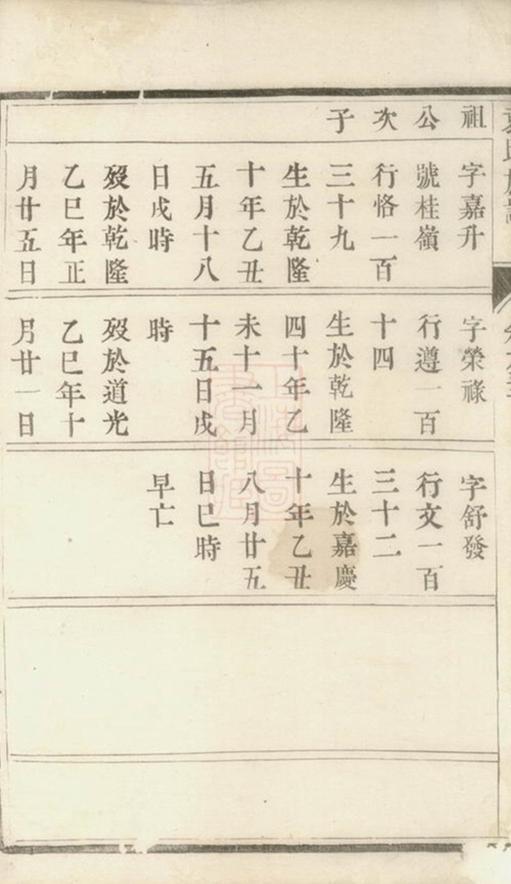 祖公次子
字嘉升
號桂嶺
行恪一百
三十九
生於乾隆
十年乙丑
五月十八
日戌時
歿於乾隆
乙巳年正
月廿五日
字榮祿
行遵一百
十四
生於乾隆
四十年乙
未十一月
十五日戌
時
歿於道光
乙巳年十
月廿一日
字舒發
行文一百
三十二
生於嘉慶
十年乙丑
八月廿五
日巳時
早亡